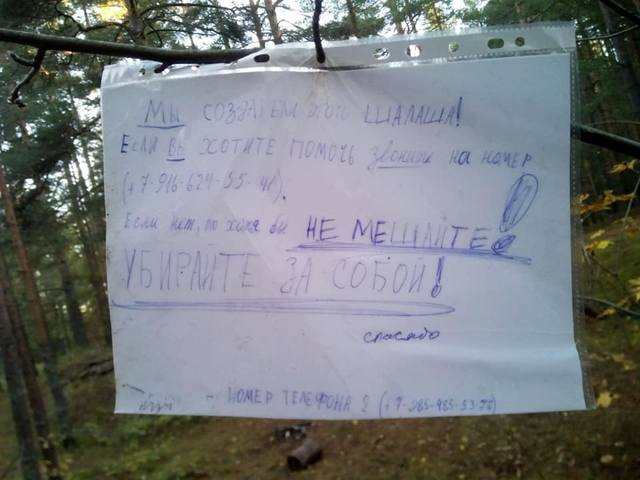 МЫ СОЗДАТЕЛИ этого ШАЛАША!
Если Вы ХОТИТЕ ПОМОЧЬ звоните на номер
(+7-916-624-35-41).
Если нет, то хотя бы НЕ МЕШАЙТЕ!
УБИРАЙТЕ ЗА СОБОЙ!
спасибо
НОМЕР ТЕЛЕФОНА 2 (+7-985-485-53-78)